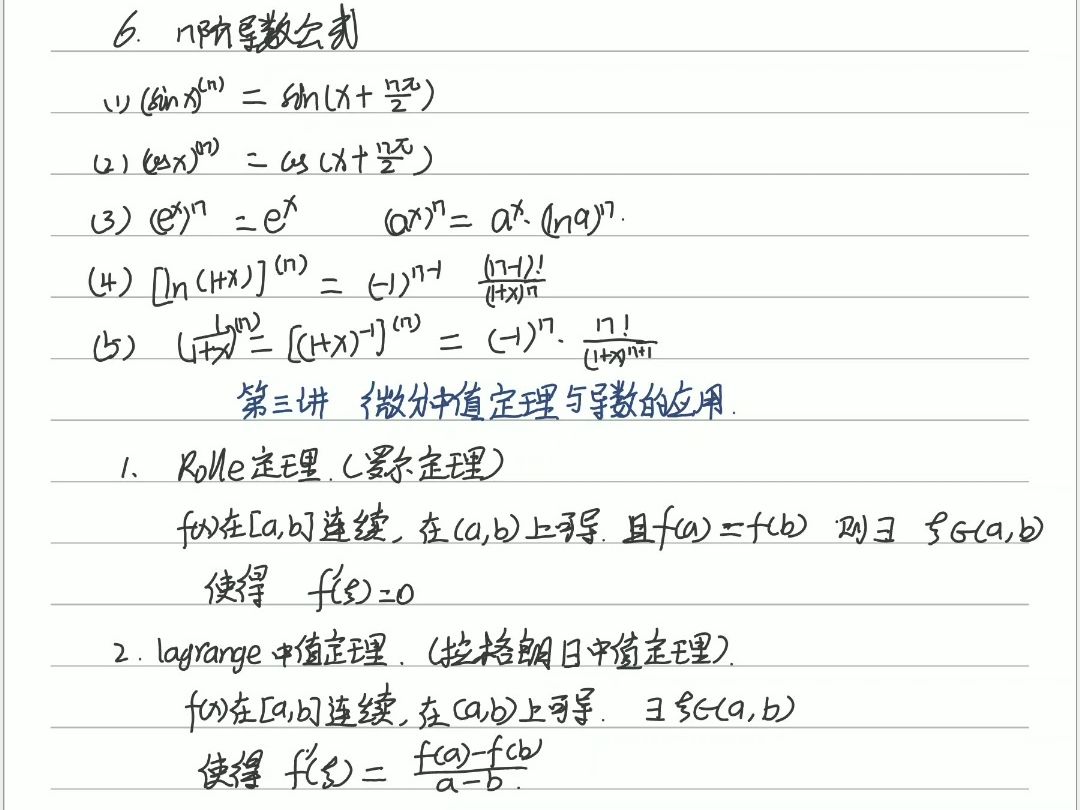 6. n阶导数公式
(1) (sin x)^(n) = sin(x + nπ/2)
(2) (cos x)^(n) = cos(x + nπ/2)
(3) (e^x)^n = e^x (a^x)^n = a^x · (ln a)^n.
(4) [ln(1+x)]^(n) = (-1)^(n-1) (n-1)!/(1+x)^n
(5) (1/(1+x))^(n) = [(1+x)^(-1)]^(n) = (-1)^n · n!/(1+x)^(n+1)
第三讲 微分中值定理与导数的应用.
1、 Rolle定理.(罗尔定理)
f(x)在[a,b]连续, 在(a,b)上可导. 且f(a)=f(b) 则∃ ξ∈(a,b)
使得 f'(ξ)=0
2. lagrange中值定理. (拉格朗日中值定理).
f(x)在[a,b]连续, 在(a,b)上可导. ∃ ξ∈(a,b)
使得 f'(ξ) = (f(a)-f(b))/(a-b).